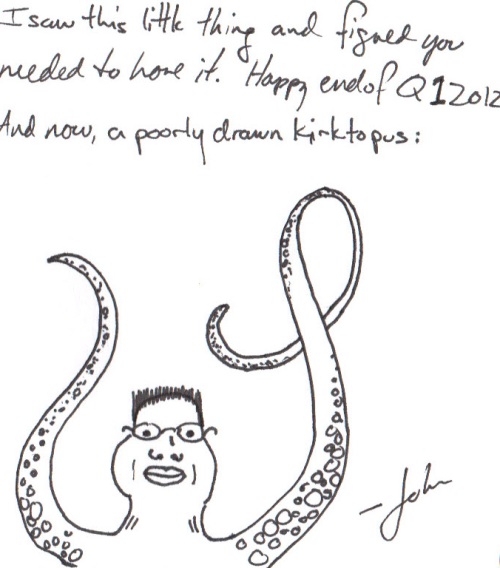 I saw this little thing and figured you
needed to have it. Happy end of Q1 2012
And now, a poorly drawn kirktopus:
- John